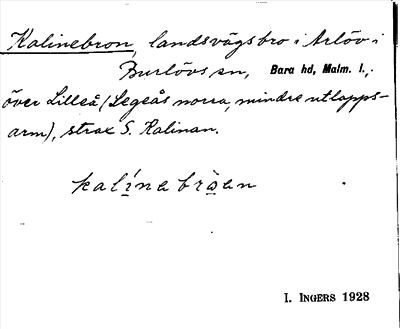 Kalinebron, landsvägsbro i Arlöv i
Burlövs sn, Bara hd, Malm. l.,
över Lilleå (Segeås norra, mindre utlopps-
arm), strax S. Kalinan.
kalinebroen
I. INGERS 1928